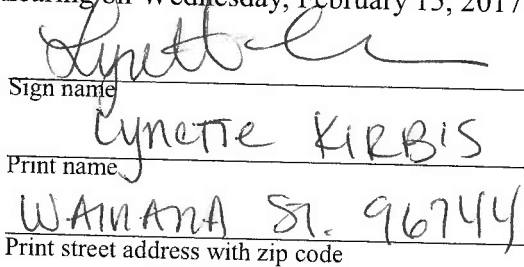 hearing on Wednesday, February 15, 2017
Lynett
Sign name
Lynette KIRBIS
Print name
WAINANA St. 96744
Print street address with zip code